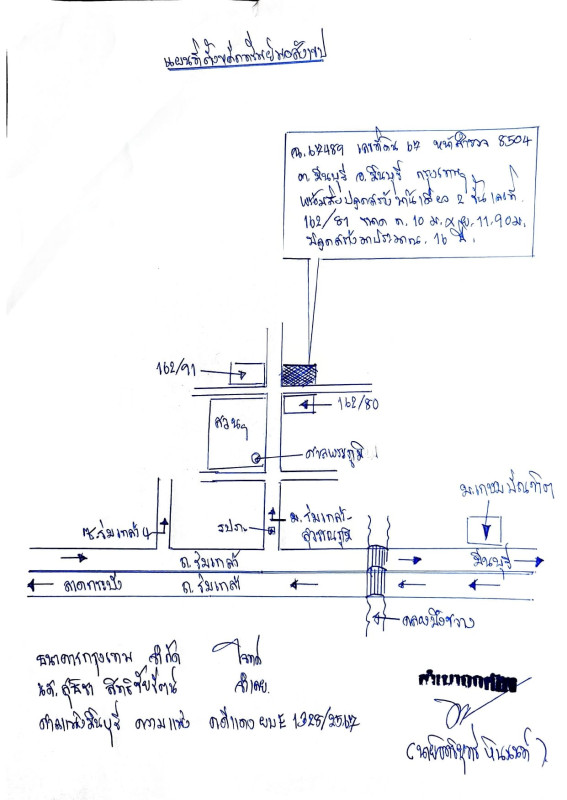 แผนที่ตั้งทรัพย์โดยสังเขป
ฉ.62489 เลขที่ดิน 62 หน้าสำรวจ 8504
ต.มีนบุรี อ.มีนบุรี กรุงเทพฯ
พร้อมสิ่งปลูกสร้าง บ้านเดี่ยว 2 ชั้น เลขที่
162/81 ขนาด ก. 10 ม. x ย. 11.90 ม.
ปลูกสร้างมาประมาณ 16 ปี.
162/91
162/80
สวนฯ
ศาลพระภูมิ
ม.เกษมบัณฑิต
ซ.ร่มเกล้า 4
รปภ.
ม.ร่มเกล้า-
สุวรรณภูมิ
ถ.ร่มเกล้า
มีนบุรี
ลาดกระบัง
ถ.ร่มเกล้า
คลองบึงขวาง
ธนาคารกรุงเทพ จำกัด โจทก์
นส.สุธิชา สิทธิชัยรัตน์ จำเลย
ศาลแพ่งมีนบุรี ความแพ่ง คดีแดง ผบE 1328/2567
สำเนาถูกต้อง